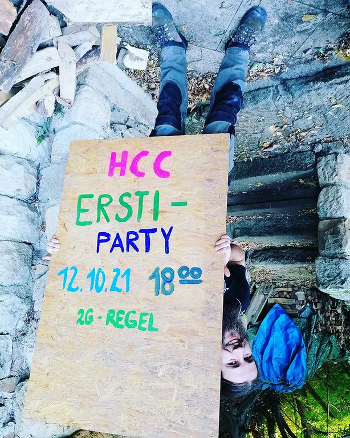 HCC
ERSTI-
PARTY
12.10.21 18⁰⁰
2G-REGEL